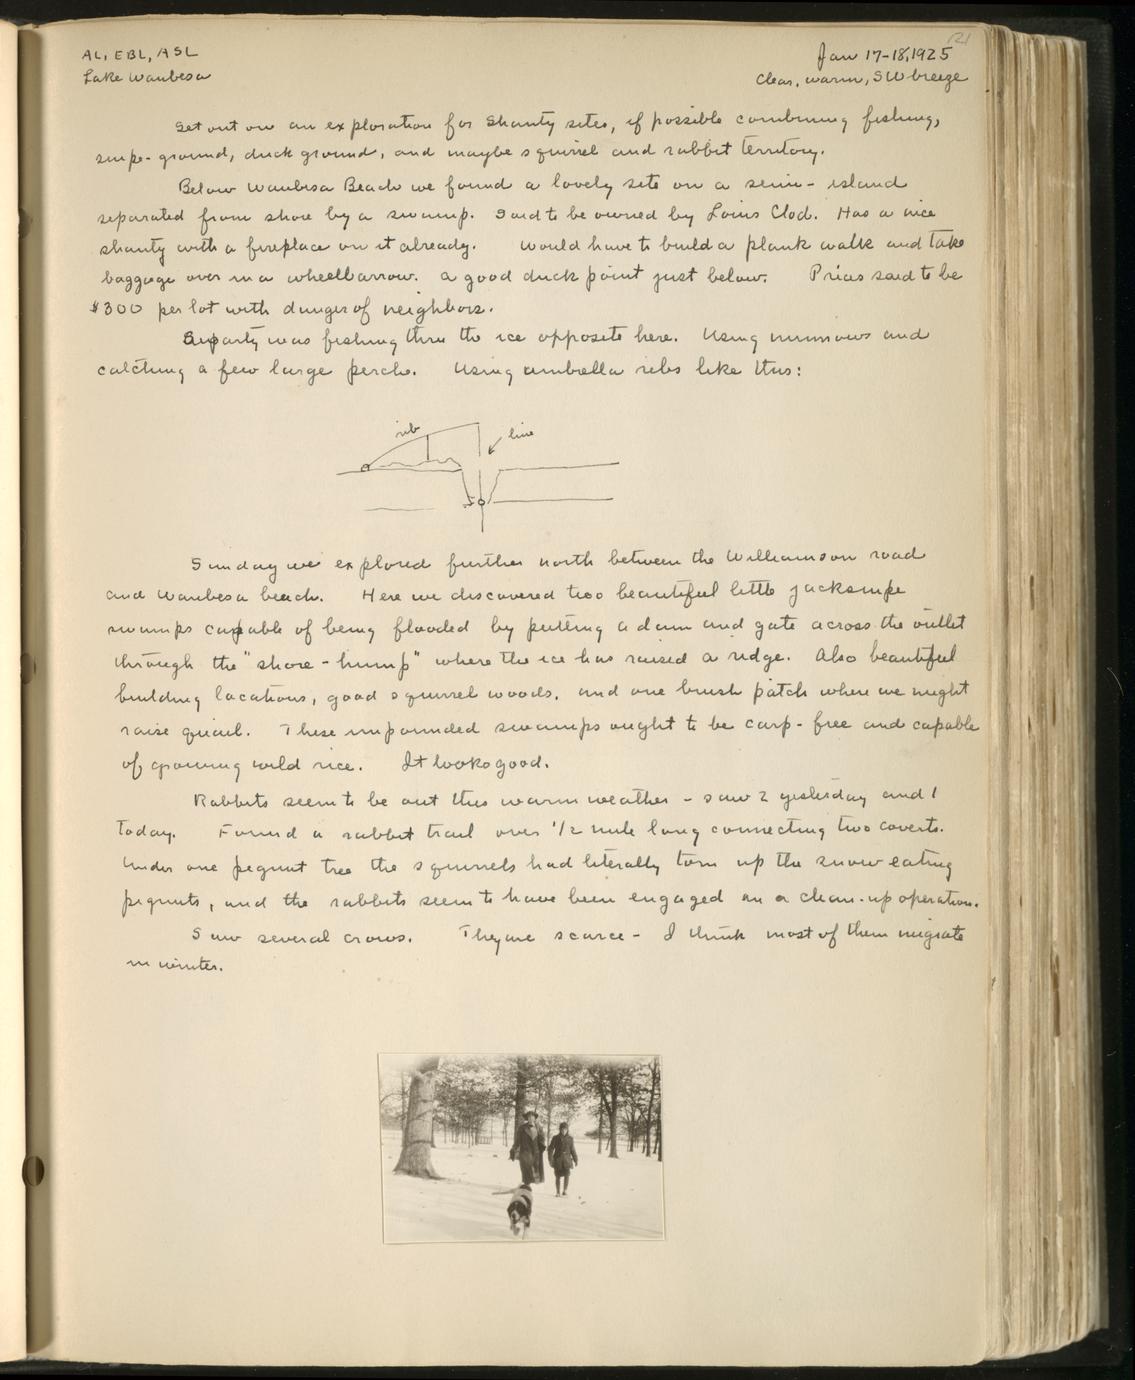 121
AL, EBL, ASL
Jan 17-18, 1925
Lake Waubesa
Clear, warm, SW breeze
Set out on an exploration for shanty sites, if possible combining fishing,
snipe-ground, duck ground, and maybe squirrel and rabbit territory.
Below Waubesa Beach we found a lovely site on a semi-island
separated from shore by a swamp. Said to be owned by Louis Clod. Has a nice
shanty with a fireplace on it already. Would have to build a plank walk and take
baggage over in a wheelbarrow. A good duck point just below. Prices said to be
$300 per lot with danger of neighbors.
party was fishing thru the ice opposite here. Using minnows and
catching a few large perch. Using umbrella ribs like this:
rib
line
Sunday we explored further north between the Williamson road
and Waubesa beach. Here we discovered two beautiful little jacksnipe
swamps capable of being flooded by putting a dam and gate across the outlet
through the "shore-hump" where the ice has raised a ridge. Also beautiful
building locations, good squirrel woods, and one brush patch where we might
raise quail. These impounded swamps ought to be carp-free and capable
of growing wild rice. It looks good.
Rabbits seem to be out this warm weather - saw 2 yesterday and 1
today. Found a rabbit trail over 1/2 mile long connecting two coverts.
Under one pignut tree the squirrels had literally torn up the snow eating
pignuts, and the rabbits seem to have been engaged on a clean-up operation.
Saw several crows. They are scarce - I think most of them migrate
in winter.